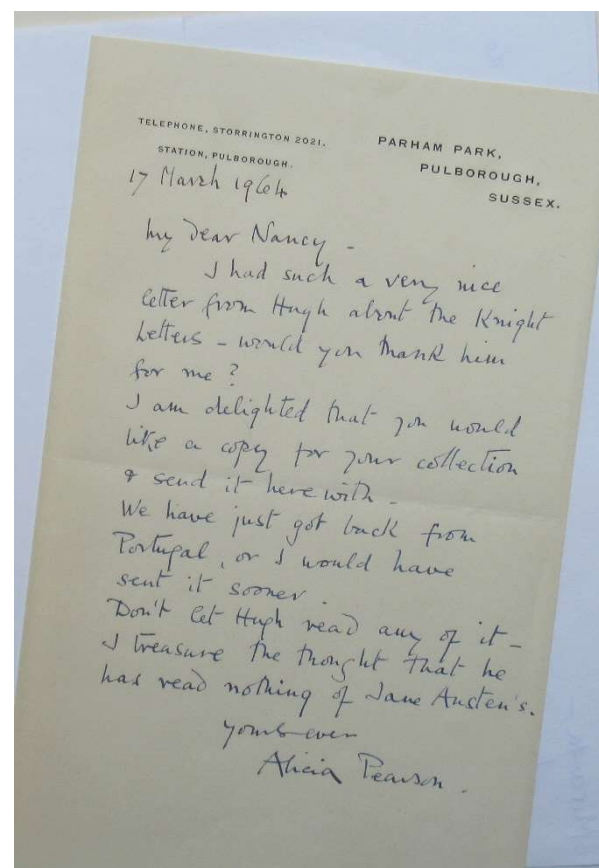 TELEPHONE, STORRINGTON 2021.
STATION, PULBOROUGH.
PARHAM PARK,
PULBOROUGH,
SUSSEX.
17 March 1964
My dear Nancy -
I had such a very nice
letter from Hugh about the Knight
Letters - would you thank him
for me?
I am delighted that you would
like a copy for your collection
& send it herewith -
We have just got back from
Portugal, or I would have
sent it sooner.
Don't let Hugh read any of it -
I treasure the thought that he
has read nothing of Jane Austen's.
yours ever
Alicia Pearson.